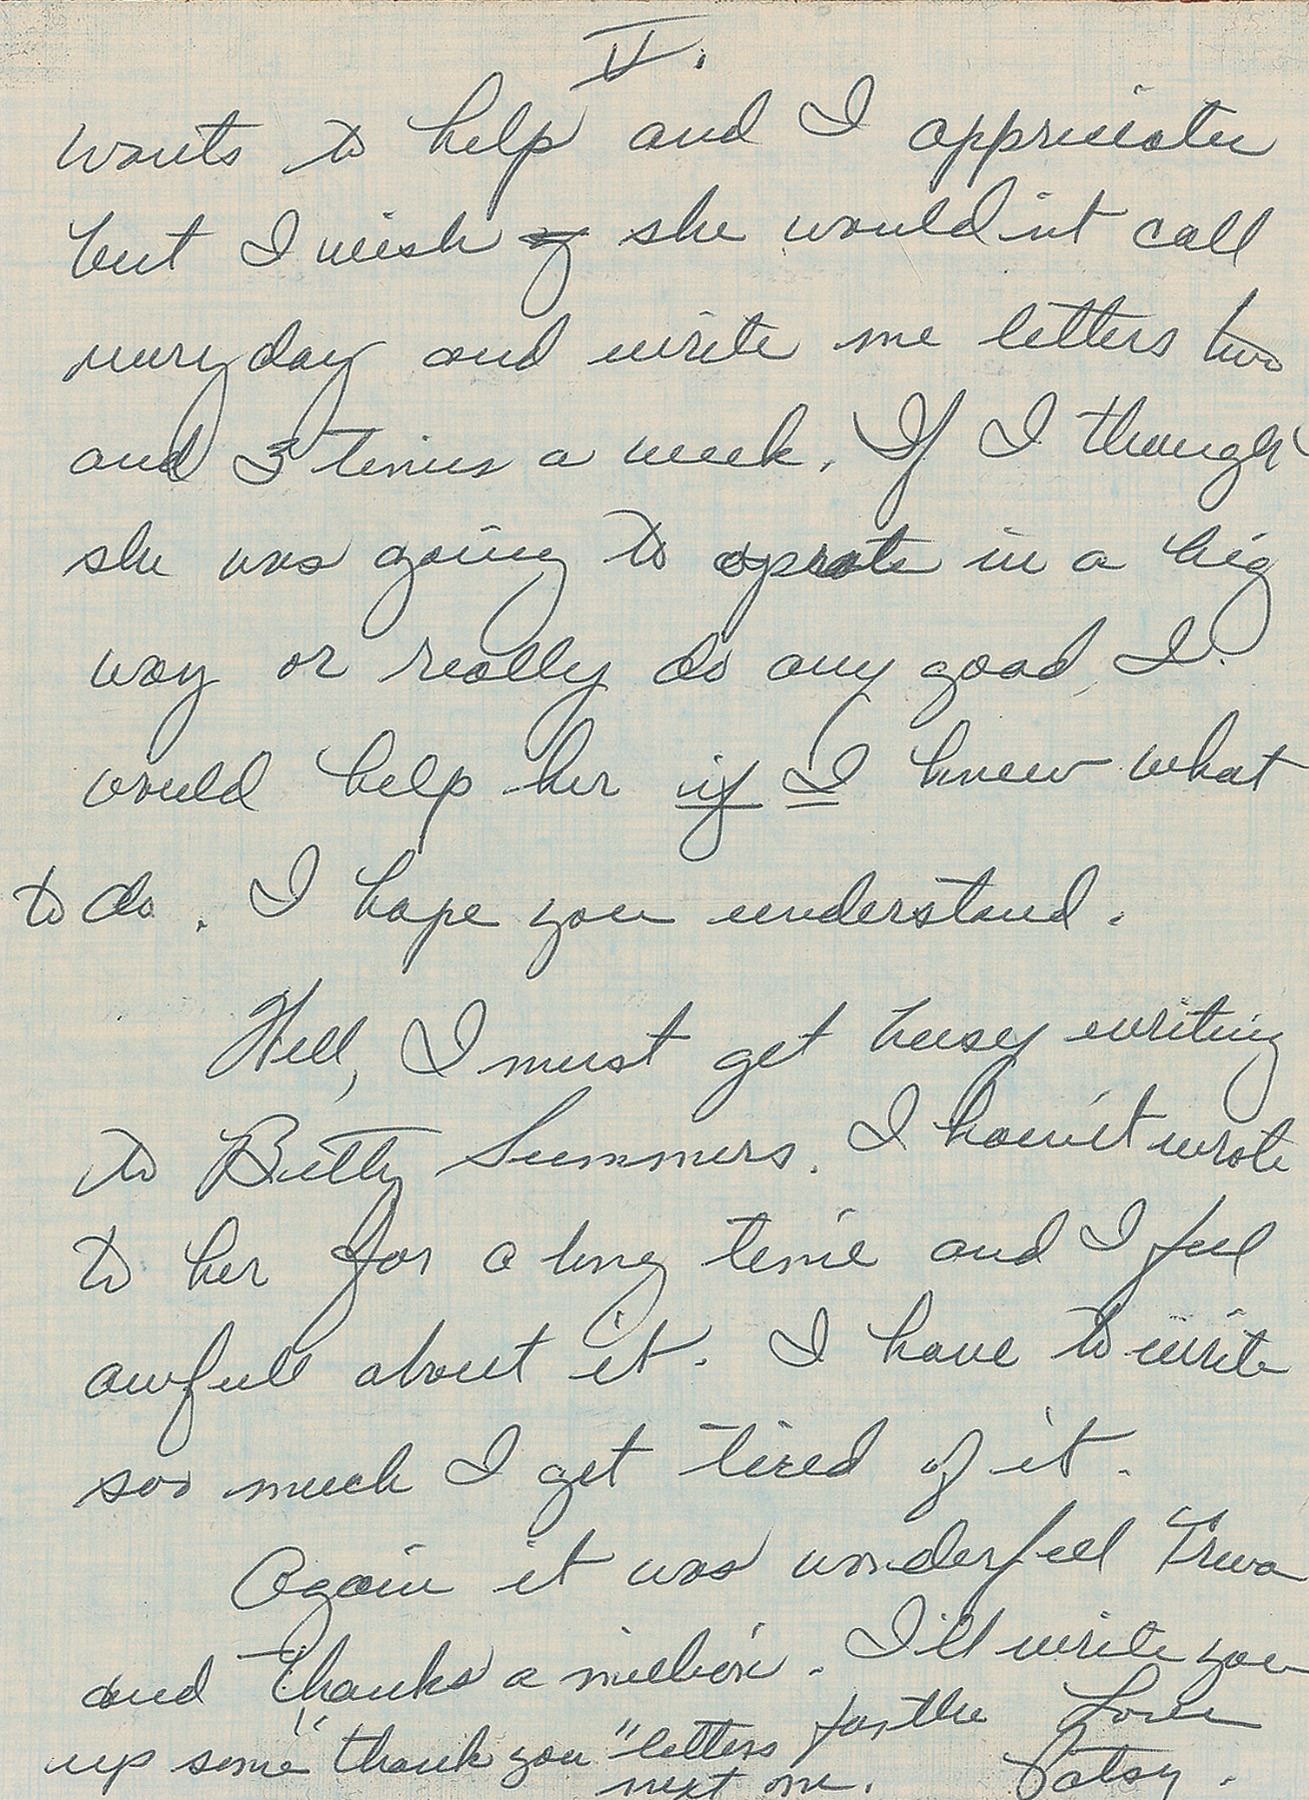 V.
wants to help and I appriciate
but I wish she wouldn't call
every day and write me letters two
and 3 times a week. If I though
she was going to oprate in a big
way or really do any good, I
would help her if I knew what
to do. I hope you understand.
Well, I must get busy writing
to Betty Summers. I haven't wrote
to her for a long time and I feel
awfull about it. I have to write
soo much I get tired of it.
Again it was wonderfull Treva
and thanks a million. I'll write you
up some "thank you" letters for the
next one.
Love
Patsy.